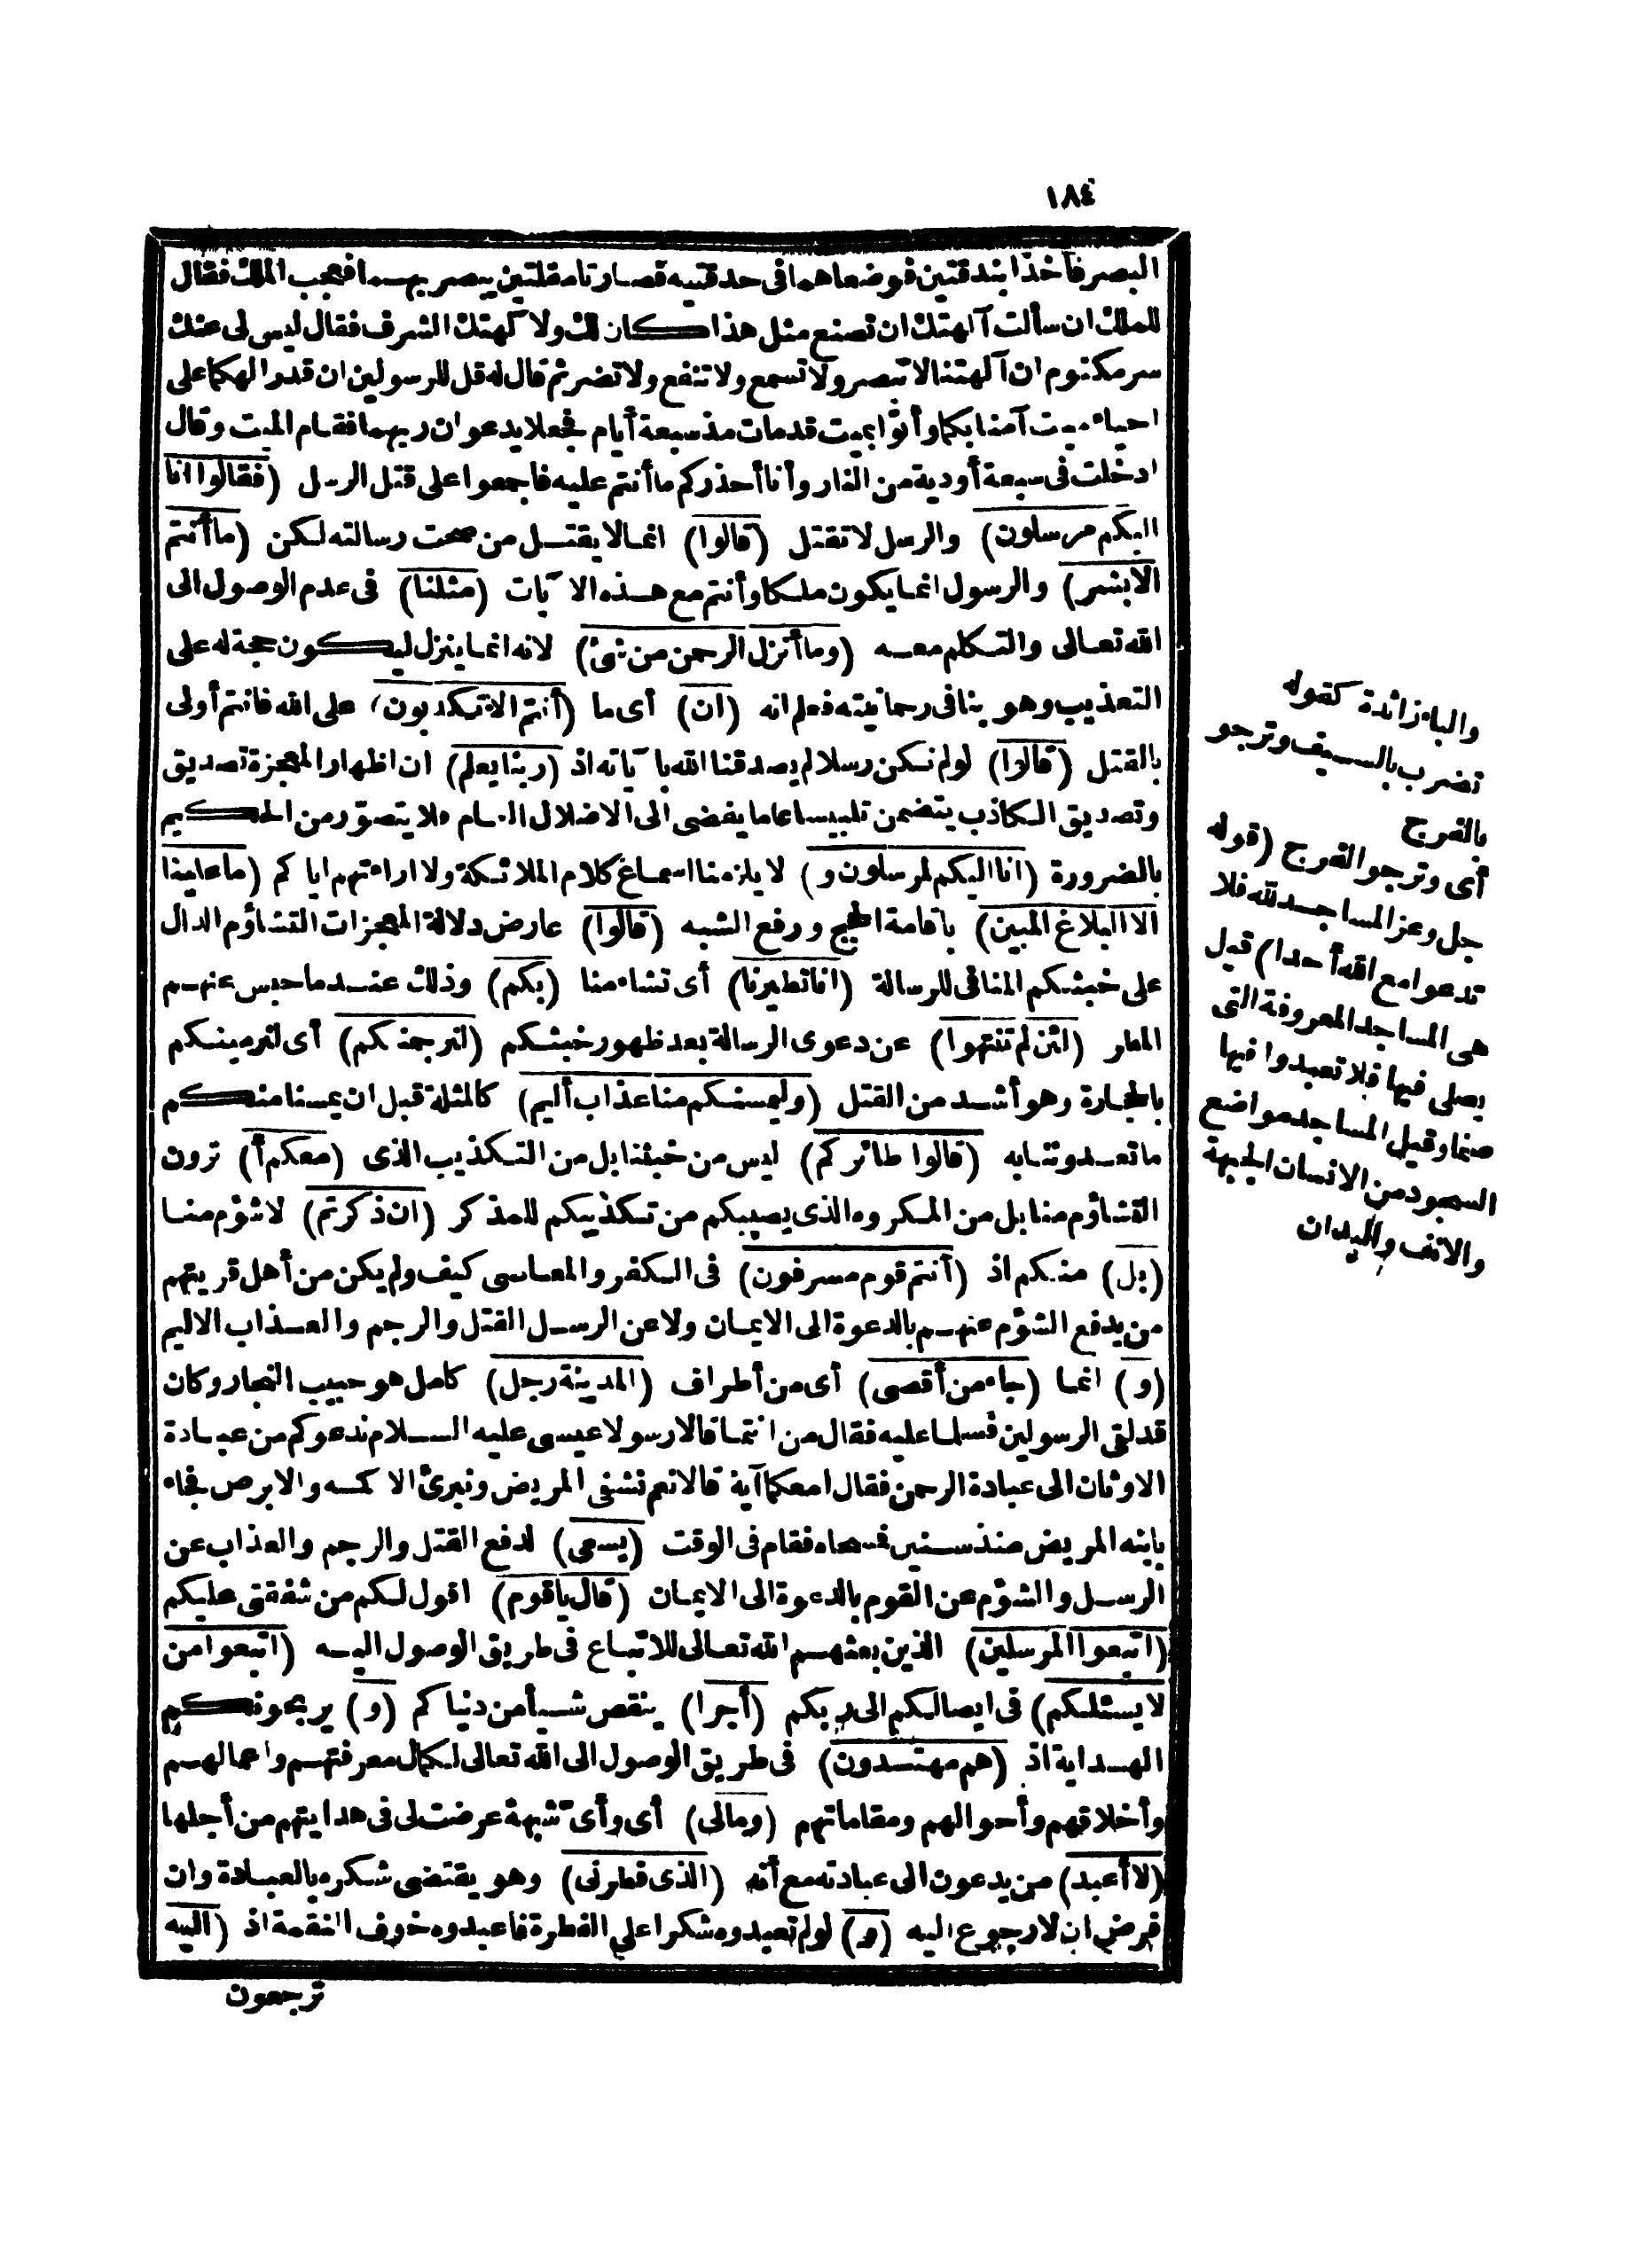 ١٨٤
البصر فأخذا بندقتين فوضعاهما فى حدقتيه فصارتا مقلتين يبصر بهما فعجب الملك فقال
للملك ان سألت آلهتك ان تصنع مثل هذا كان لك ولآ لهتك الشرف فقال ليس لى عنك
سر مكتوم ان آلهتنا لا تبصر ولا تسمع ولا تنفع ولا تضر ثم قال له قل للرسولين ان قدر الهكما على
احياء ميت آمنا بكما وأتوا بميت قد مات مذ سبعة أيام فجعلا يدعوان ربهما فقام الميت وقال
ادخلت فى سبعة أودية من النار وأنا أحذركم ما أنتم عليه فاجمعوا على قتل الرسل (فقالوا انا
اليكم مرسلون) والرسل لا تقتل (قالوا) انما لا يقتل من صحت رسالته لكن (ما أنتم
الا بشر) والرسول انما يكون ملكا وأنتم مع هذه الآيات (مثلنا) فى عدم الوصول الى
الله تعالى والتكلم معه (وما أنزل الرحمن من شئ) لانه انما ينزل ليكون حجة له على
التعذيب وهو ينافى رحمانيته فعلم انه (ان) أى ما (أنتم الا تكذبون) على الله فانتم أولى
بالقتل (قالوا) لو لم نكن رسلا لم يصدقنا الله بآياته اذ (ربنا يعلم) ان اظهار المعجزة تصديق
وتصديق الكاذب يتضمن تلبيسا عاما يفضى الى الاضلال العام ولا يتصور من الحكيم
بالضرورة (انا اليكم لمرسلون و) لا يلزمنا اسماع كلام الملائكة ولا اراءتهم ايا كم (ما علينا
الا البلاغ المبين) باقامة الحجج ورفع الشبه (قالوا) عارض دلالة المعجزات التشاؤم الدال
على خبثكم المنافى للرسالة (انا تطيرنا) أى تشاءمنا (بكم) وذلك عند ما حبس عنهم
المطر (لئن لم تنتهوا) عن دعوى الرسالة بعد ظهور خبثكم (لنرجمنكم) أى لنرمينكم
بالحجارة وهو أشد من القتل (وليمسنكم منا عذاب أليم) كالمثلة قبل ان يمسنا منكم
ما تعدوننا به (قالوا طائركم) ليس من خبثنا بل من التكذيب الذى (معكم أ) ترون
التشاؤم منا بل من المكروه الذى يصيبكم من تكذيبكم للمذكر (ان ذكرتم) لا شؤم منا
(بل) منكم اذ (أنتم قوم مسرفون) فى الكفر والمعاصى كيف ولم يكن من أهل قريتهم
من يدفع الشؤم عنهم بالدعوة الى الايمان ولا عن الرسل القتل والرجم والعذاب الاليم
(و) انما (جاء من أقصى) أى من أطراف (المدينة رجل) كامل هو حبيب النجار وكان
قد لقى الرسولين فسلما عليه فقال من انتما قالا رسولا عيسى عليه السلام ندعوكم من عبادة
الاوثان الى عبادة الرحمن فقال امعكما آية قالا نعم نشفى المريض ونبرئ الاكمه والابرص فجاء
بابنه المريض منذ سنين فمسحاه فقام فى الوقت (يسعى) لدفع القتل والرجم والعذاب عن
الرسل والشؤم عن القوم بالدعوة الى الايمان (قال ياقوم) اقول لكم من شفقتى عليكم
(اتبعوا المرسلين) الذين بعثهم الله تعالى للاتباع فى طريق الوصول اليه (اتبعوا من
لا يسئلكم) فى ايصالكم الى ربكم (أجرا) ينقص شيأ من دنياكم (و) يربحونكم
الهداية اذ (هم مهتدون) فى طريق الوصول الى الله تعالى لكمال معرفتهم واعمالهم
وأخلاقهم وأحوالهم ومقاماتهم (ومالى) أى وأى شبهة عرضت لى فى هدايتهم من أجلها
(لا أعبد) من يدعون الى عبادته مع أنه (الذى فطرنى) وهو يقتضى شكره بالعبادة وان
فرض ان لا رجوع اليه (و) لو لم تعبدوه شكرا على الفطرة فاعبدوه خوف النقمة اذ (اليه
ترجعون
والباء زائدة كقوله
تضرب بالسيف وترجو
بالفرج
أى وترجو الفرج (قوله
جل وعز المساجد لله فلا
تدعوا مع الله أحدا) قيل
هى المساجد المعروفة التى
يصلى فيها فلا تعبدوا فيها
صنما وقيل المساجد مواضع
السجود من الانسان الجبهة
والانف واليدان